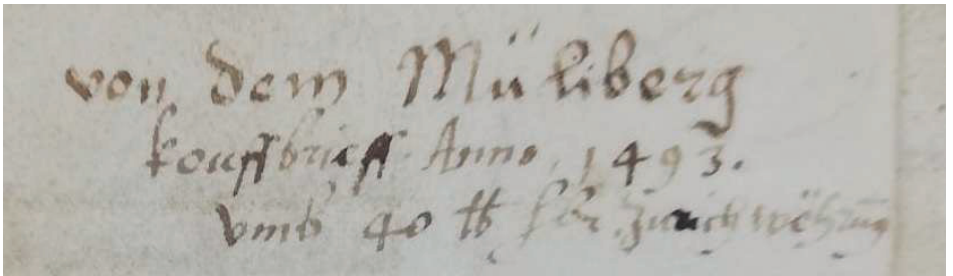 von dem Müliberg
kouffbrieff Anno, 1493.
vmb 40 ℔ hlr. Zürich währung